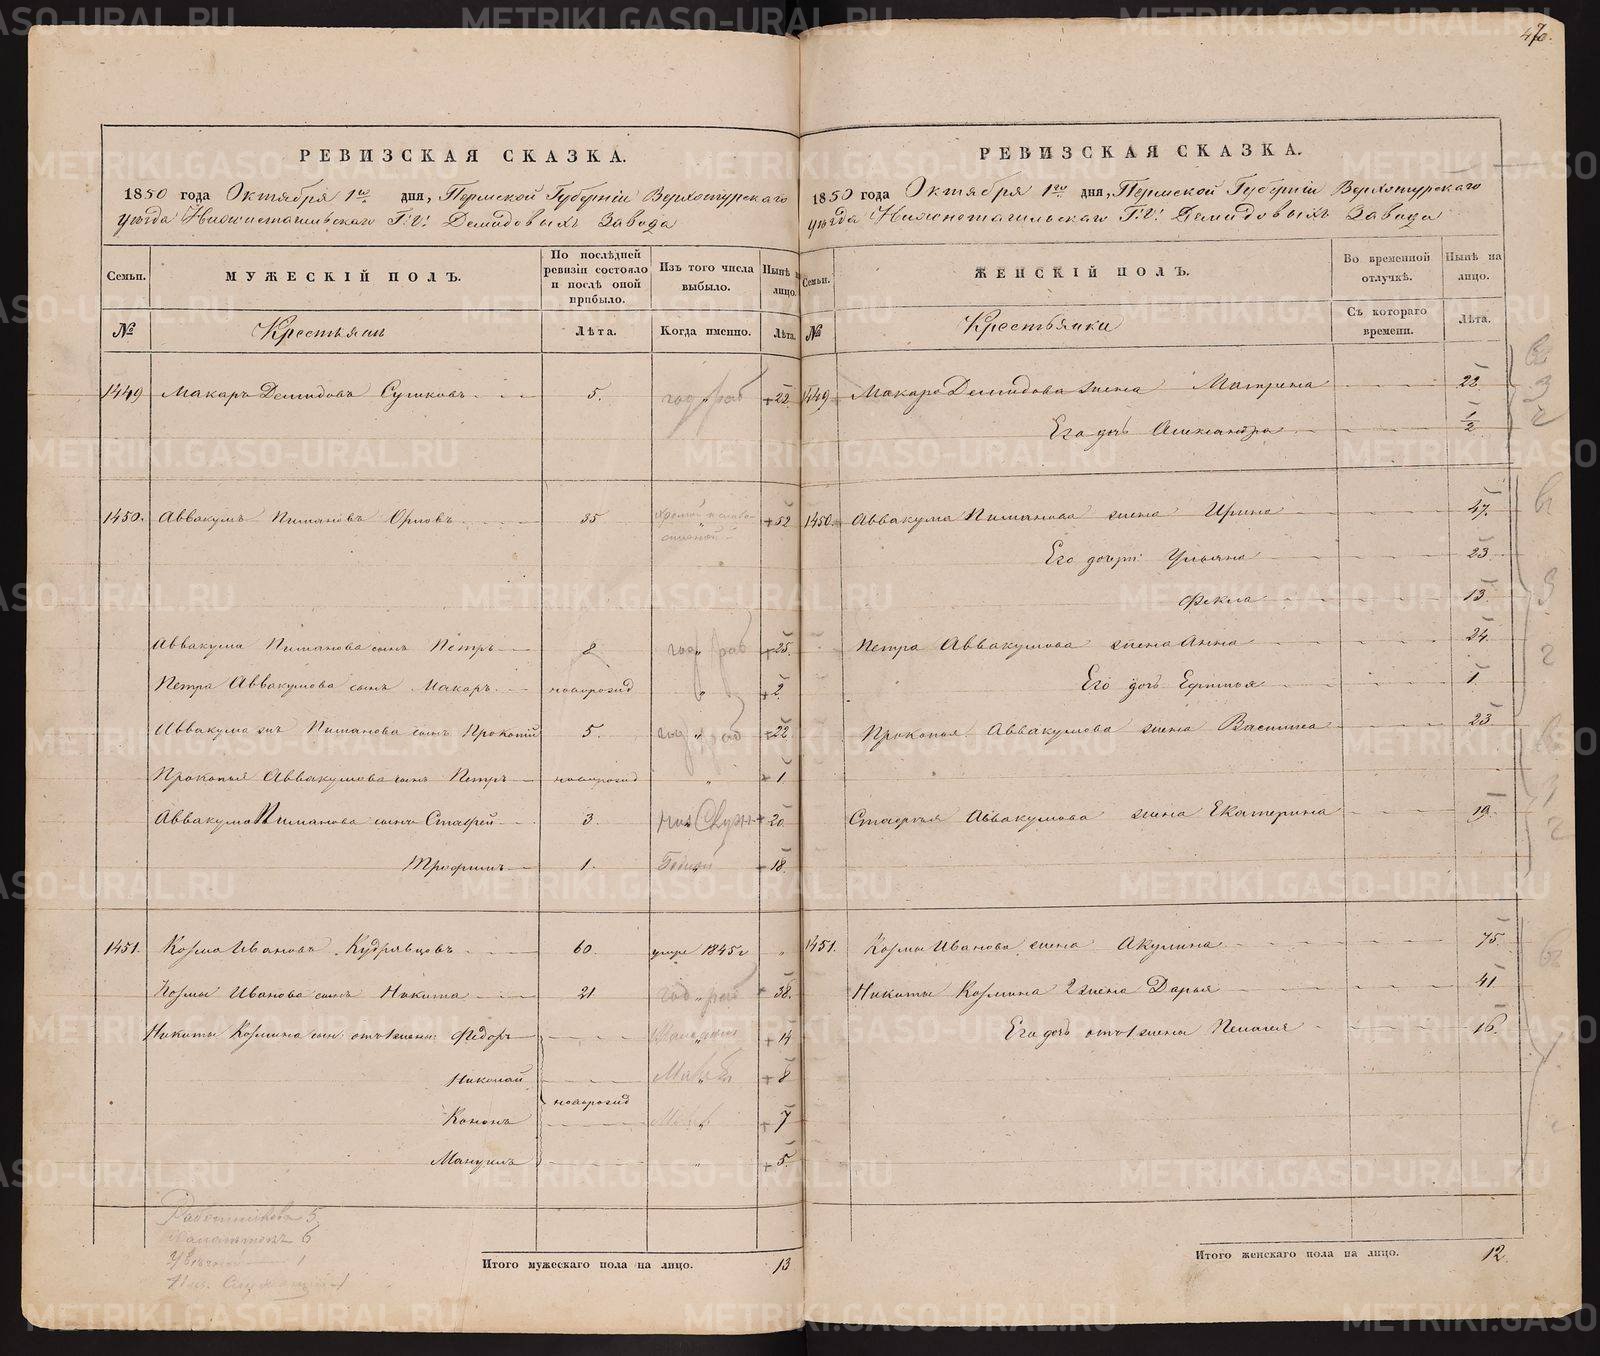 47
РЕВИЗСКАЯ СКАЗКА.
1850 года Октября 1го дня, Пермской Губерніи Верхотурскаго
уѣзда Нижнетагильскаго Г.г. Демидовыхъ Завода
Семьи.
МУЖЕСКІЙ ПОЛЪ.
По послѣдней ревизіи состояло и послѣ оной прибыло.
Изъ того числа выбыло.
Нынѣ на лицо.
№
Крестьянъ
Лѣта.
Когда именно.
Лѣта.
1449 Макаръ Демидовъ Сушковъ 5. год раб +22
1450. Аввакумъ Пимановъ Орловъ 35 +52
Аввакума Пиманова сынъ Петръ 8 год раб +25.
Петра Аввакумова сынъ Макаръ новорожд „ +2
Аввакума Пиманова сынъ Прокопій 5. год раб +22
Прокопья Аввакумова сынъ Петръ новорожд „ +1
Аввакума Пиманова сынъ Стафей 3. +20
Трофимъ 1. +18
1451. Козма Ивановъ Кудрявцовъ 60. умре 1845 г „
Козмы Иванова сынъ Никита 21 год раб 38.
Никиты Козмина сын: отъ 1 жены: Федоръ +14
Николай +8
новорожд
Кононъ +7
Мануилъ „ +5.
Работниковъ 5
Малолѣтокъ 6
1
1
Итого мужескаго пола на лицо. 13
РЕВИЗСКАЯ СКАЗКА.
1850 года Октября 1го дня, Пермской Губерніи Верхотурскаго
уѣзда Нижнетагильскаго Г.г. Демидовыхъ Завода
Семьи.
ЖЕНСКІЙ ПОЛЪ.
Во временной отлучкѣ.
Нынѣ на лицо.
№
Крестьянки
Съ котораго времени.
Лѣта.
1449 Макара Демидова жена Матрена 22
Его дочь Александра 1/2
1450. Аввакума Пиманова жена Ирина 47.
Его дочри: Ульяна 23
Фекла 13.
Петра Аввакумова жена Анна 24.
Его дочь Ефимья 1.
Прокопья Аввакумова жена Васишса 23
Стафѣя Аввакумова жена Екатерина 19
1451. Козмы Иванова жена Акулина 75.
Никиты Козмина 2 жена Дарья 41
Его дочь отъ 1 жены Пелагея 16.
Итого женскаго пола на лицо. 12
METRIKI.GASO-URAL.RU